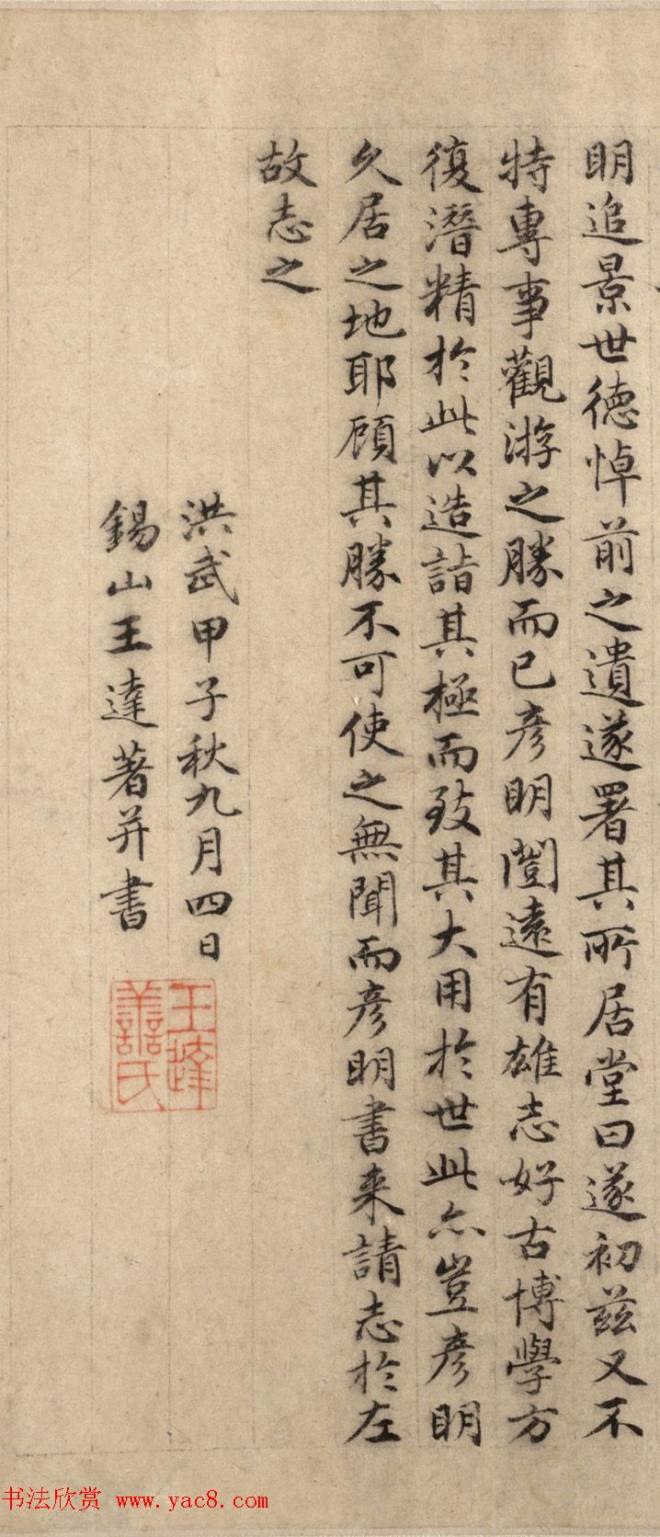 明追景世德悼前之遺遂署其所居堂曰遂初茲又不
特專事觀游之勝而已彦明闓遠有雄志好古博學方
復潛精於此以造詣其極而致其大用於世此亦豈彦明
久居之地耶顧其勝不可使之無聞而彦明書來請志於左
故志之
洪武甲子秋九月四日
錫山王達著并書
王達
善氏
书法欣赏 www.yac8.com